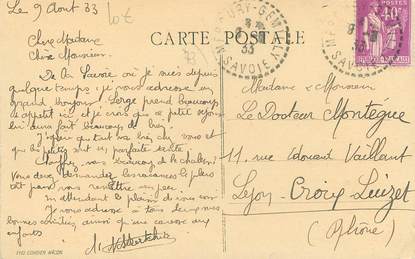 Le 9 Août 33
Chère Madame
Cher Monsieur.
CARTE POSTALE
De la Savoie où je suis depuis
quelque temps, je vous adresse un
grand bonjour. Serge prend beaucoup
d'appétit ici et je crois que ce petit séjour
lui aura fait beaucoup de bien.
J'espère que tout va bien chez vous et
que les petits sont en parfaite santé.
beaucoup de chaleur
Vous devez les vacances le plus
tôt pour vous remettre un peu.
En attendant le plaisir de vous voir
Je vous adresse à tous deux mes
bonnes amitiés ainsi qu'une caresse aux
enfants.
Madame & Monsieur
Le Docteur Montègue
11, rue Edouard Vaillant
Lyon-Croix Luizet
(Rhône)
33
SAVOIE
POSTES
40c